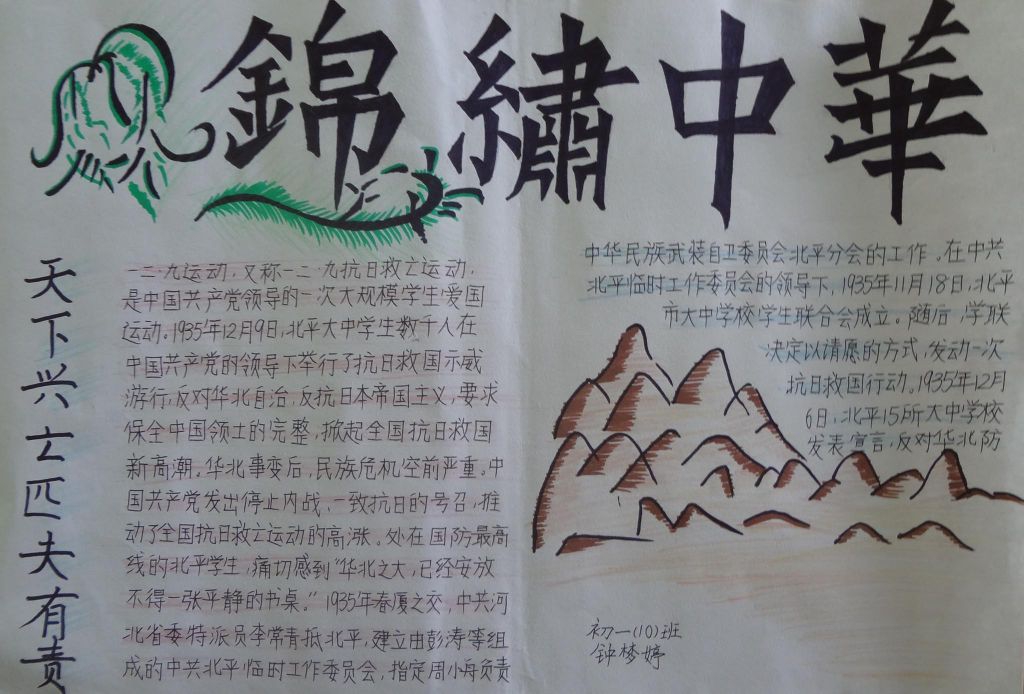 錦繡中華
天下兴亡匹夫有责
一二·九运动，又称一二·九抗日救亡运动，
是中国共产党领导的一次大规模学生爱国
运动。1935年12月9日，北平大中学生数千人在
中国共产党的领导下举行了抗日救国示威
游行，反对华北自治，反抗日本帝国主义，要求
保全中国领土的完整，掀起全国抗日救国
新高潮。华北事变后，民族危机空前严重。中
国共产党发出停止内战、一致抗日的号召，推
动了全国抗日救亡运动的高涨。处在国防最高
线的北平学生，痛切感到“华北之大，已经安放
不得一张平静的书桌。”1935年春厦之交，中共河
北省委特派员李常青抵北平，建立由彭涛等组
成的中共北平临时工作委员会，指定周小舟负责
中华民族武装自卫委员会北平分会的工作。在中共
北平临时工作委员会的领导下，1935年11月18日，北平
市大中学校学生联合会成立。随后，学联
决定以请愿的方式，发动一次
抗日救国行动。1935年12月
6日，北平15所大中学校
发表宣言，反对华北防
初一(10)班
钟梦婷